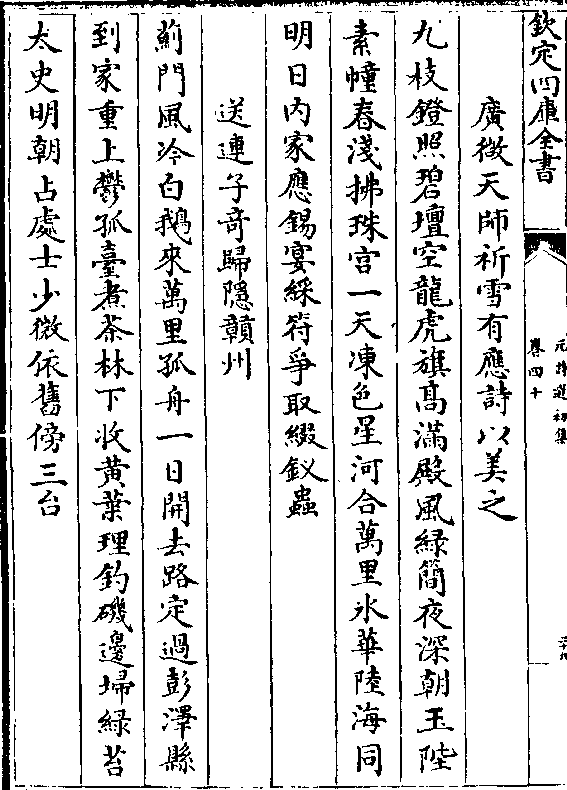 欽定四庫全書
元詩選初集
卷四十
廣微天師祈雪有應詩以美之
九枝鐙照碧壇空龍虎旗高滿殿風緑簡夜深朝玉陛
素幢春淺拂珠宫一天凍色星河合萬里氷華陸海同
明日内家應錫宴綵符爭取綴釵蟲
送連子竒歸隱贛州
薊門風冷白鵝來萬里孤舟一日開去路定過彭澤縣
到家重上鬱孤臺煮茶林下收黄葉理釣磯邊埽緑苔
太史明朝占處士少微依舊傍三台